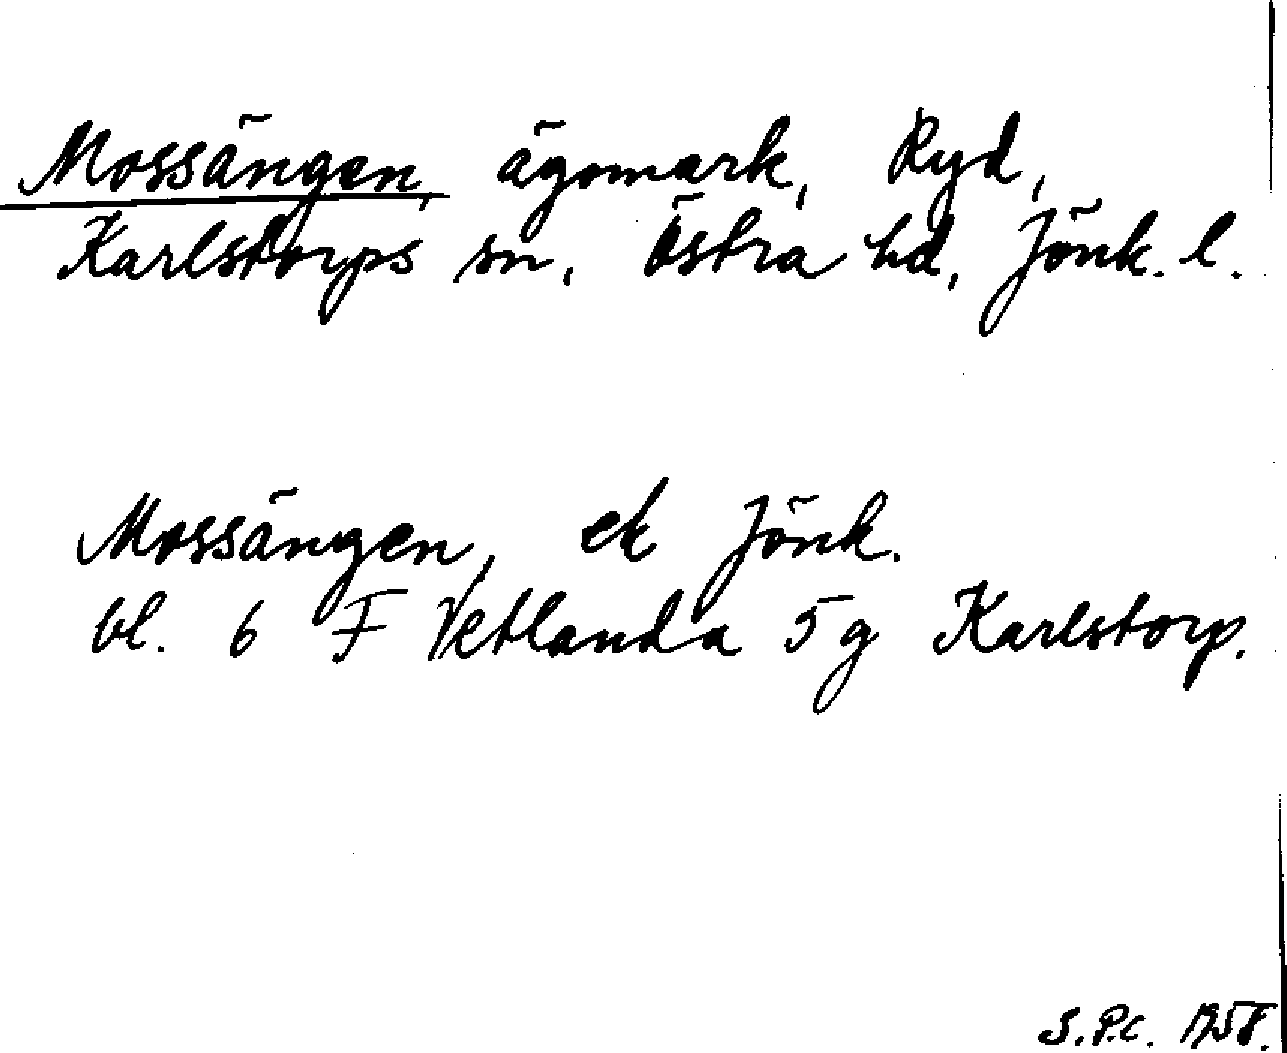 Mossängen, ägomark, Ryd,
Karlstorps sn, Östra hd, Jönk. l.
Mossängen, ek Jönk.
bl. 6 F Vetlanda 5g Karlstorp.
S.P.C. 1958.